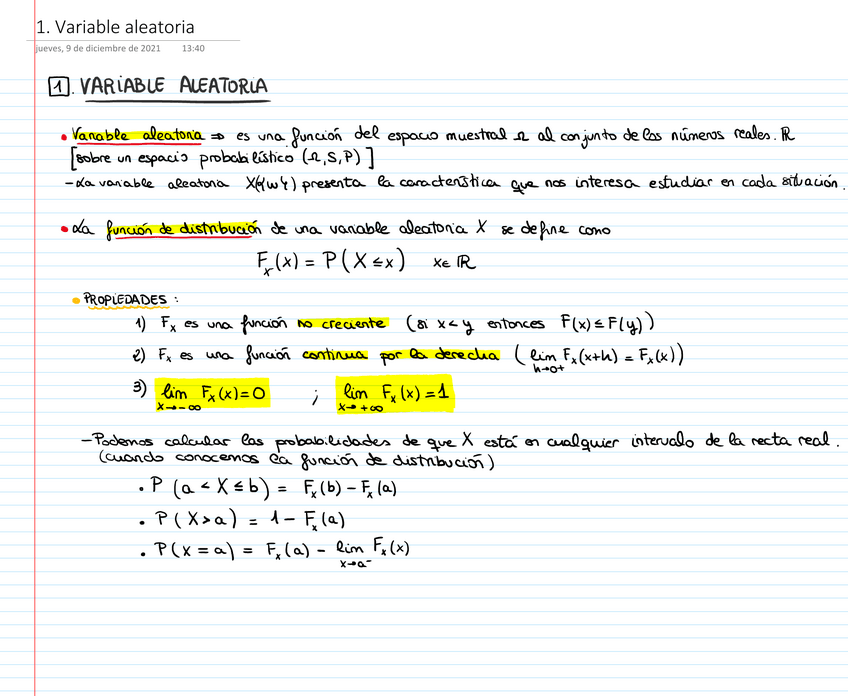 1. Variable aleatoria
jueves, 9 de diciembre de 2021 13:40
1. VARIABLE ALEATORIA
• Variable aleatoria ⇒ es una función del espacio muestral Ω al conjunto de los números reales. ℝ
[sobre un espacio probabilístico (Ω,S,P)]
- La variable aleatoria X({ω}) presenta la característica que nos interesa estudiar en cada situación.
• La función de distribución de una variable aleatoria X se define como
Fₓ(x) = P(X ≤ x) x∈ℝ
• PROPIEDADES:
1) Fₓ es una función no creciente (si x < y entonces F(x) ≤ F(y))
2) Fₓ es una función continua por la derecha (lim Fₓ(x+h) = Fₓ(x))
h→0+
3) lim Fₓ(x)=0 ; lim Fₓ(x)=1
x→-∞ x→+∞
- Podemos calcular las probabilidades de que X está en cualquier intervalo de la recta real.
(cuando conocemos la función de distribución)
• P(a < X ≤ b) = Fₓ(b) - Fₓ(a)
• P(X > a) = 1 - Fₓ(a)
• P(X = a) = Fₓ(a) - lim Fₓ(x)
x→a⁻